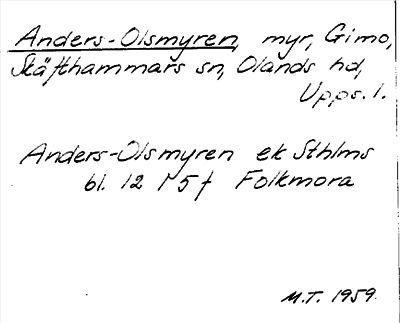 Anders-Olsmyren, myr, Gimo,
Skäfthammars sn, Olands hd,
Upps. l.
Anders-Olsmyren ek Sthlms
bl. 12 15 f Folkmora
M.T. 1959.